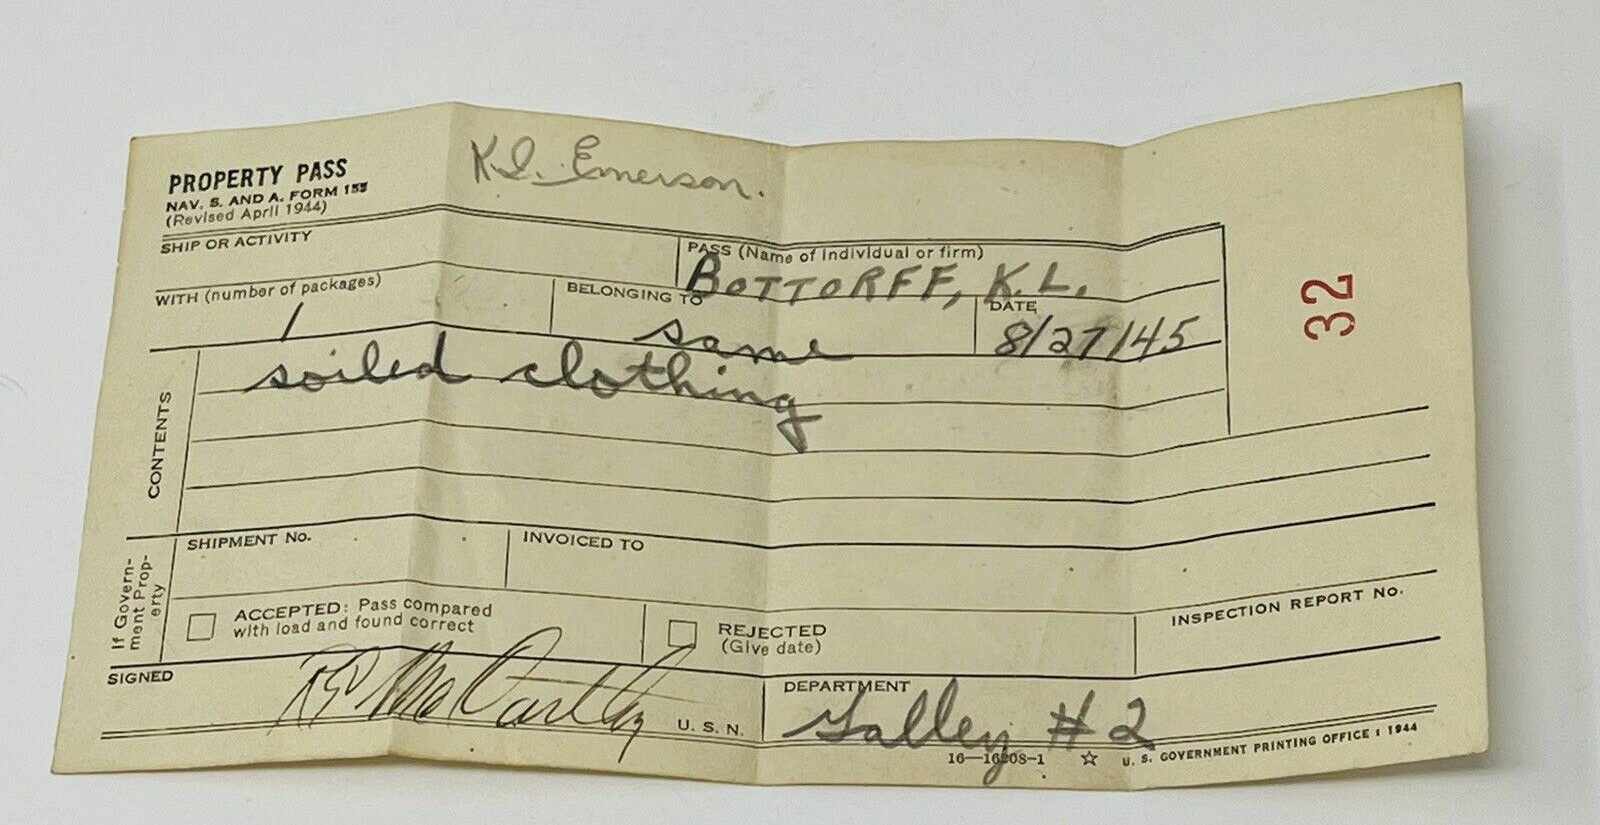 K.L. Emerson.
PROPERTY PASS
NAV. S. AND A. FORM 155
(Revised April 1944)
SHIP OR ACTIVITY
PASS (Name of individual or firm)
BOTTORFF, K.L.
WITH (number of packages)
1
BELONGING TO
same
DATE
8/27/45
32
CONTENTS
soiled clothing
If Govern-
ment Prop-
erty
SHIPMENT No.
INVOICED TO
ACCEPTED: Pass compared
with load and found correct
REJECTED
(Give date)
INSPECTION REPORT No.
SIGNED
McCarthy
U. S. N.
DEPARTMENT
Galley #2
16—16208-1 ☆ U. S. GOVERNMENT PRINTING OFFICE : 1944